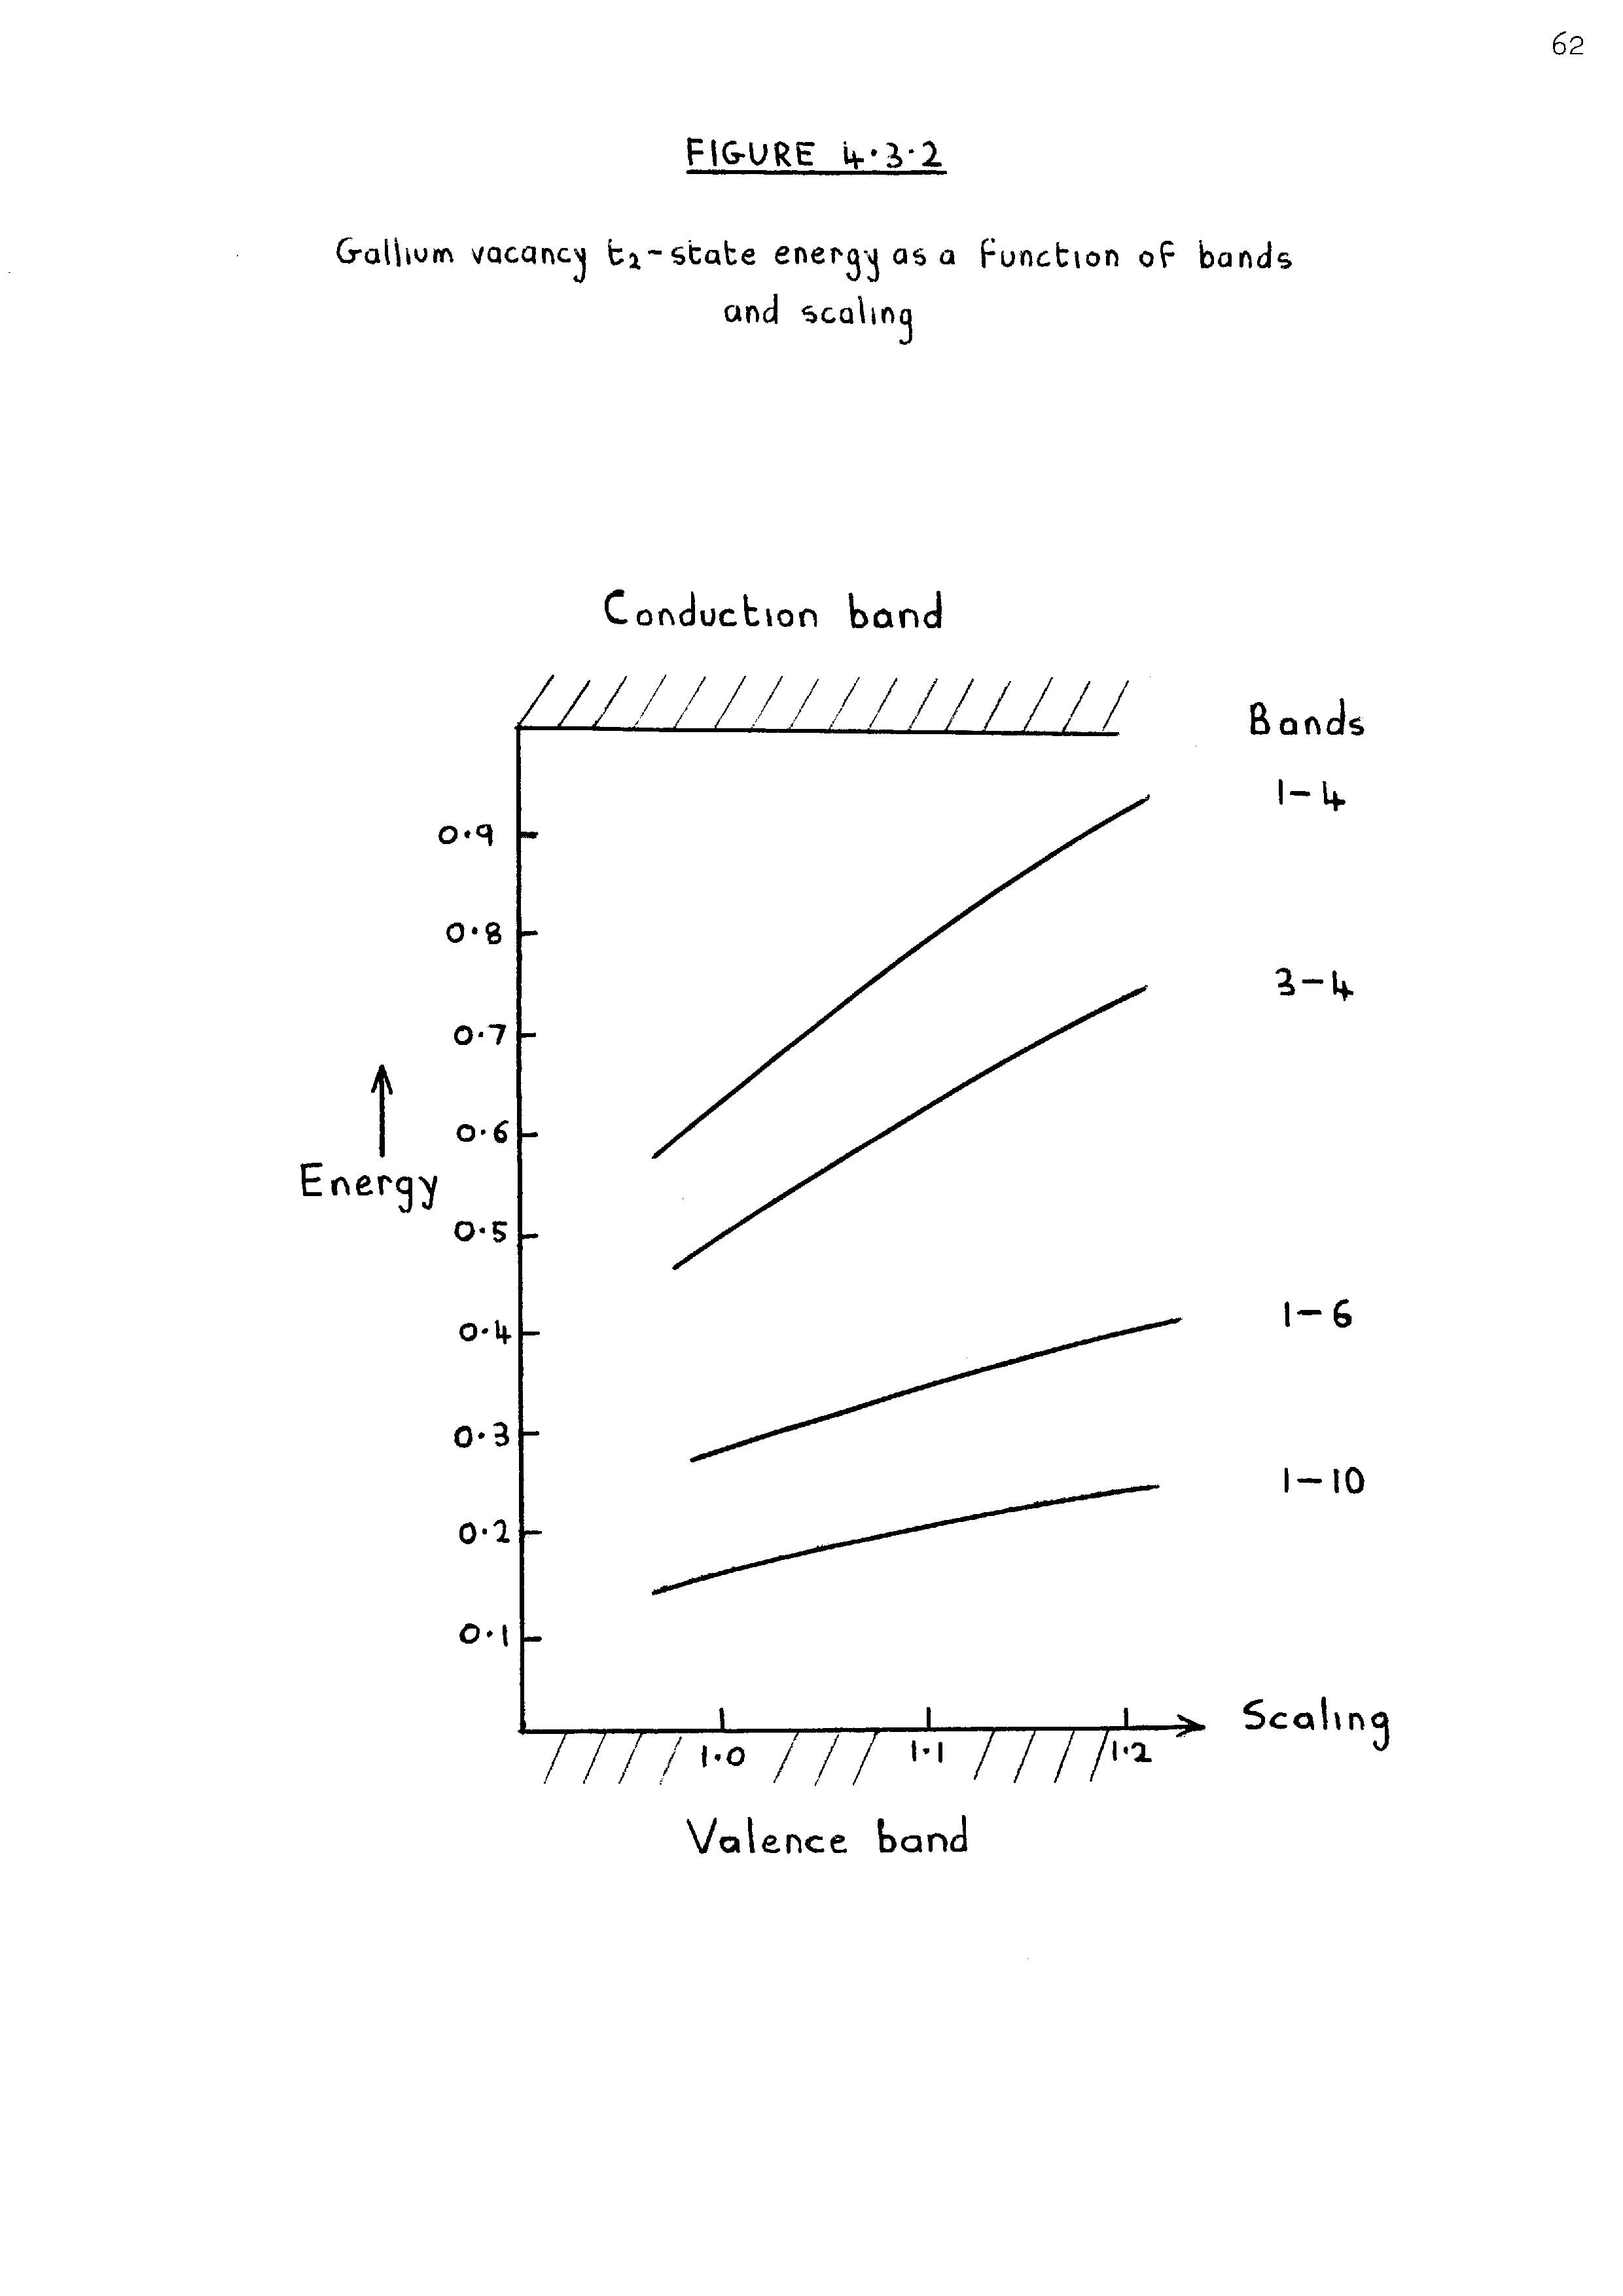 62
FIGURE 4.3.2
Gallium vacancy t₂-state energy as a function of bands
and scaling
Conduction band
Bands
1-4
0.9
0.8
3-4
0.7
0.6
Energy
0.5
1-6
0.4
0.3
1-10
0.2
0.1
Scaling
1.0 1.1 1.2
Valence band